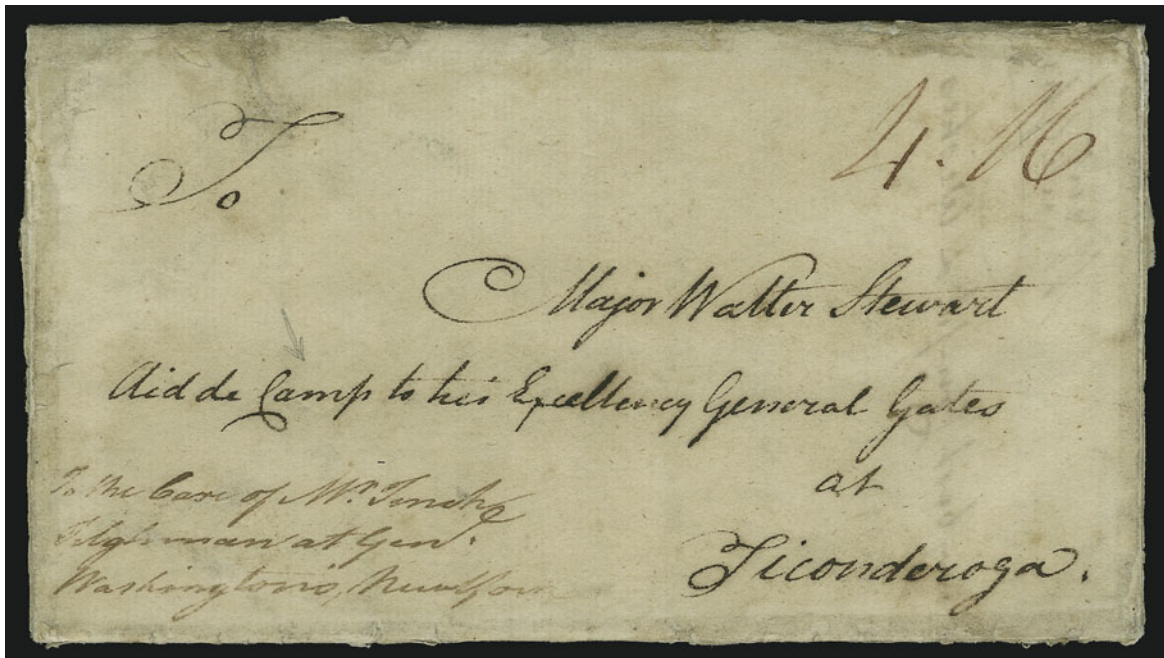 To
4. 16
Major Walter Stewart
Aid de Camp to his Excellency General Gates
at
Ticonderoga.
To the Care of Mr. Tench
Tilghman at Genl.
Washington's, New York